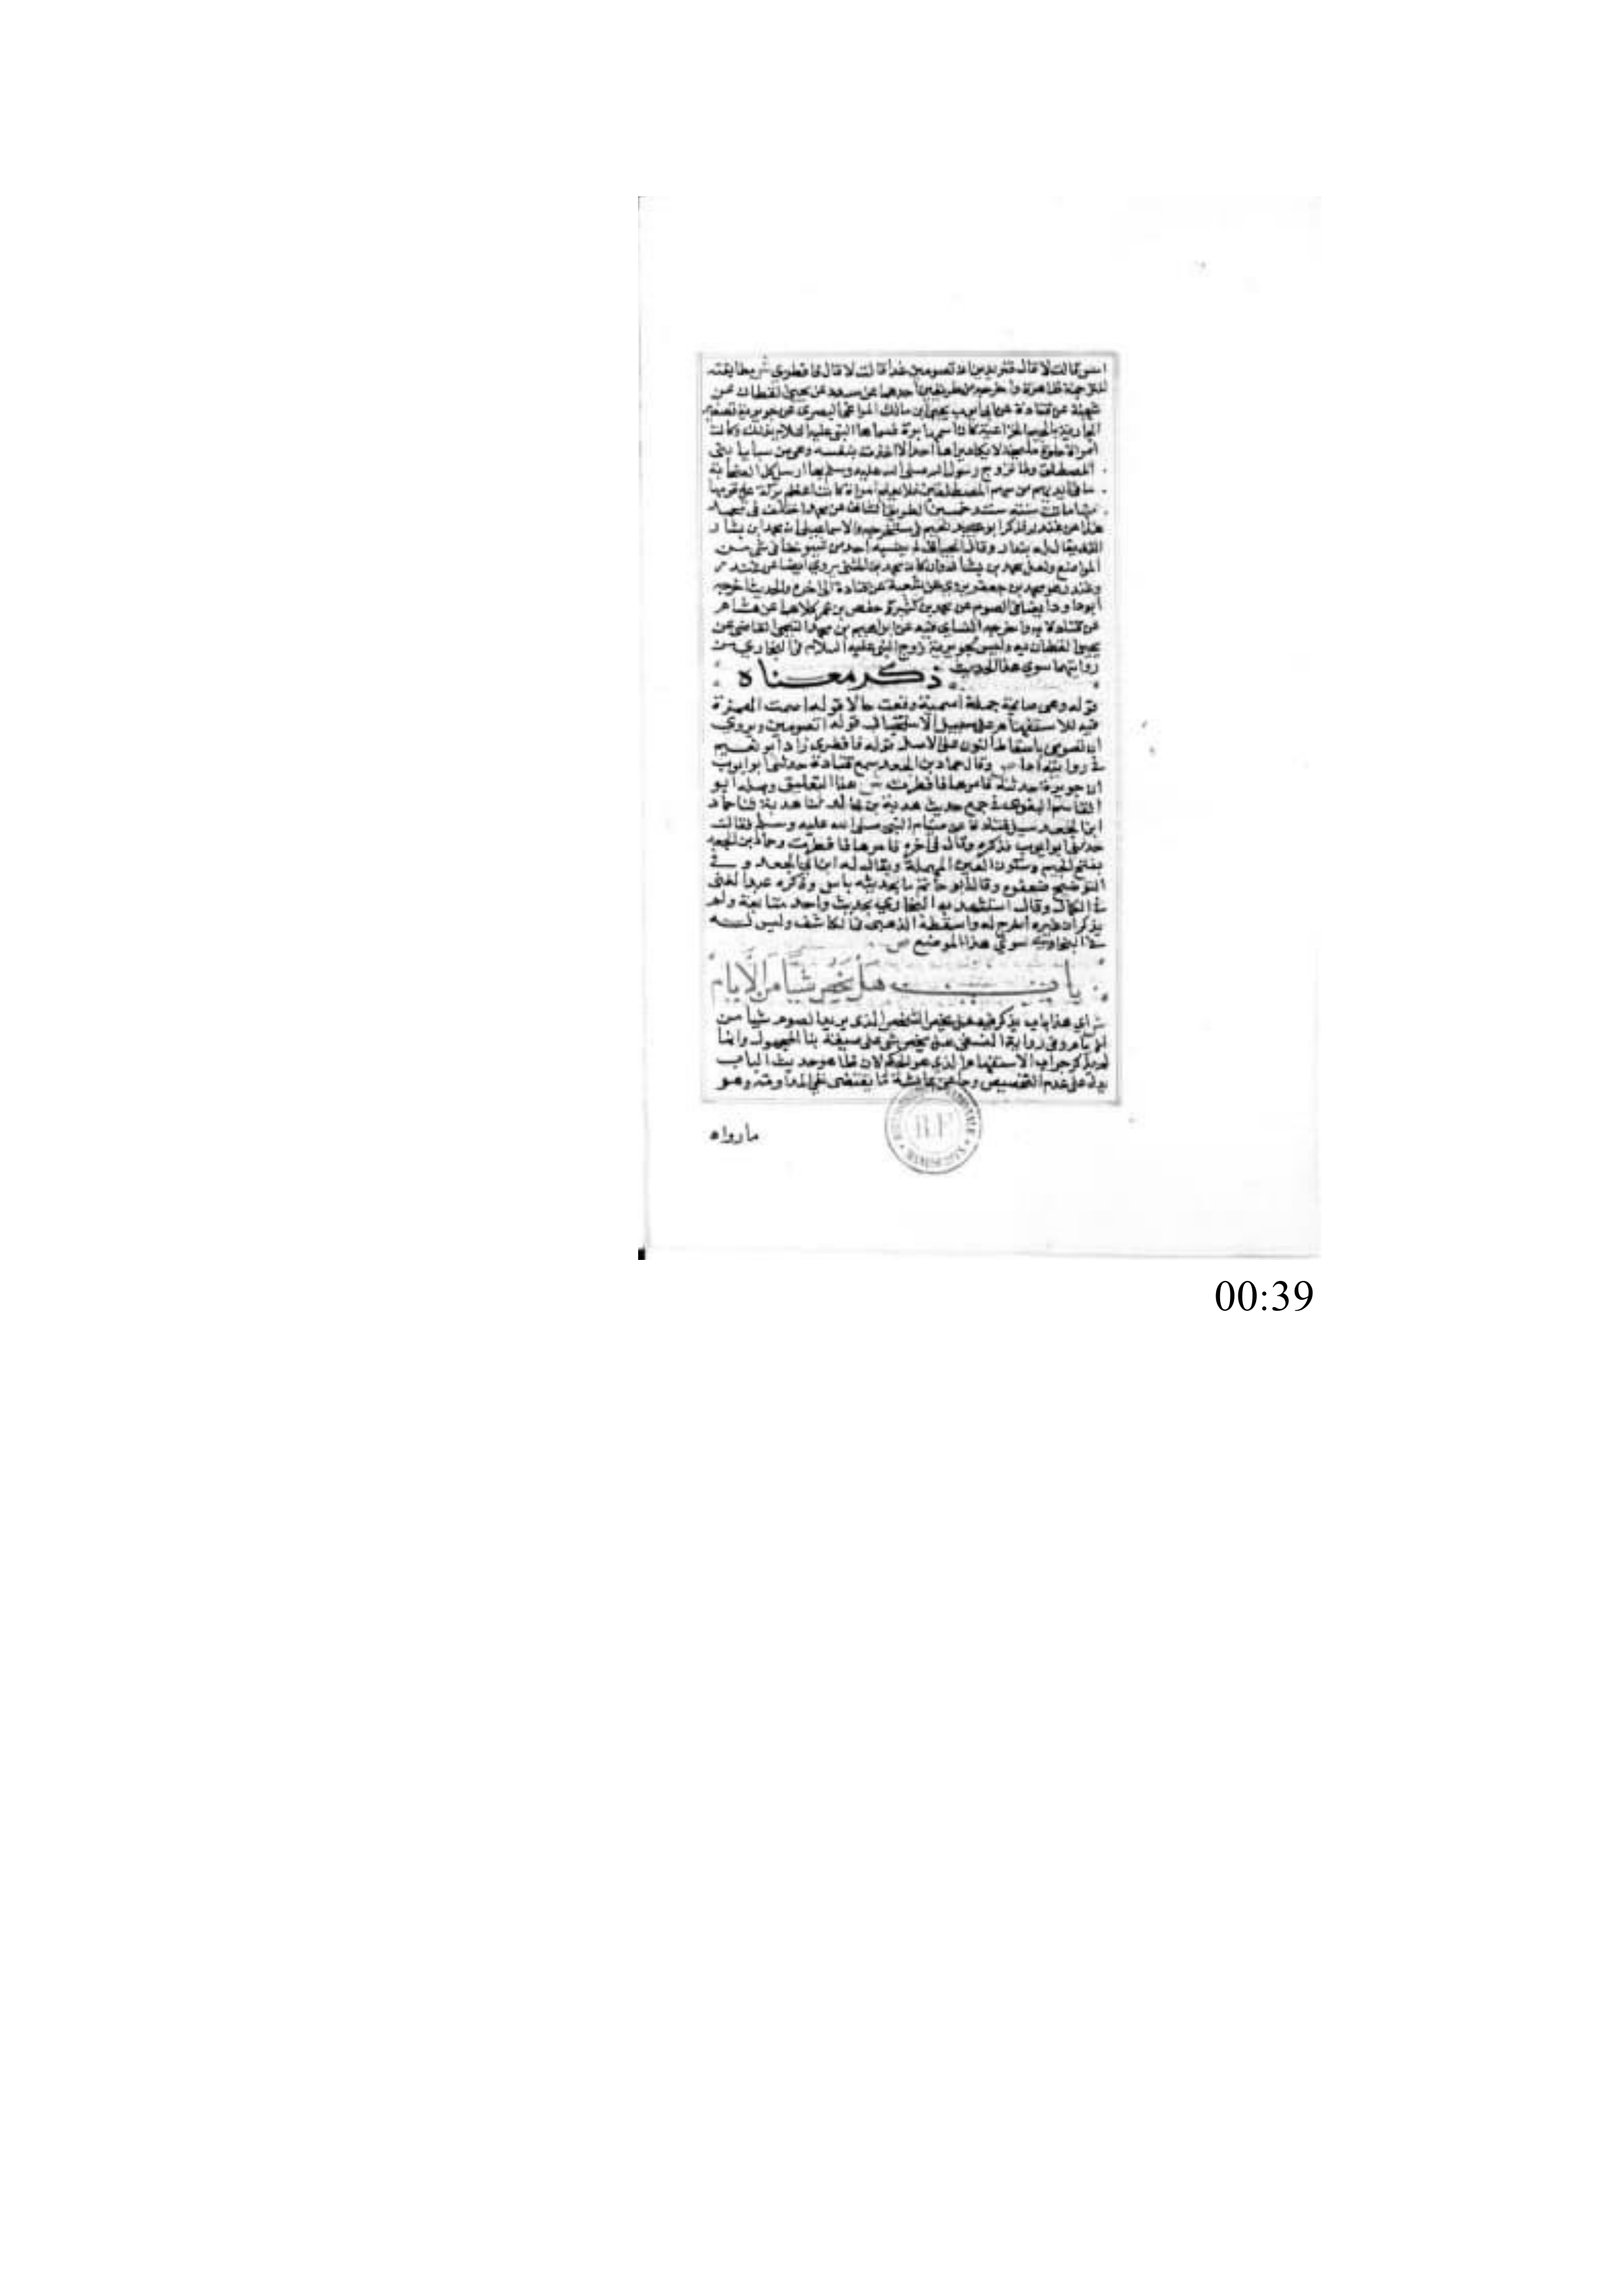 امس قالت لا قال فتريدين ان تصومين غدا قالت لا قال فافطري ش مطابقته
للترجمة ظاهرة واخرجه من طريقين احدهما عن مسدد عن يحيى القطان عن
شعبة عن قتادة عن ابي ايوب يحيى بن مالك المراغي البصري عن جويرية تصغير
الجارية بالجيم الخزاعية كان اسمها برة فسماها النبي عليه السلام بذلك وكانت
امراة حلوة مليحة لا يكاد يراها احد الا اخذت بنفسه وهي من سبايا بني
المصطلق ولما تزوج رسول الله صلى الله عليه وسلم بها ارسل كل الصحابة
ما في ايديهم من سهم المصطلقين فلا يعلم امراة كانت اعظم بركة على قومها
منها ماتت سنة ست وخمسين الطريق الثاني عن محمد واختلف في محمد
هذا عن غندر فذكر ابو نعيم في مستخرجه والاسماعيلي انه محمد ابن بشار
الذي يقال له بندار وقال الجياني لم ينسبه احد من شيوخنا في شي من
المواضع ولعله محمد بن بشار وان كان محمد بن المثنى يروي ايضا عن غندر
وغندر هو محمد بن جعفر يروي عن شعبة عن قتادة الى اخره والحديث اخرجه
ابوداود ايضا في الصوم عن محمد بن كثير وحفص بن عمر كلاهما عن همام
عن قتادة به واخرجه النساي فيه عن ابراهيم بن محمد التيمي القاضي عن
يحيى القطان به وليس لجويرية زوج النبي عليه السلام في البخاري من
روايتها سوي هذا الحديث
ذكر معناه
قوله وهي صايمة جملة اسمية وقعت حالا قوله اصمت الهمزة
فيه للاستفهام على سبيل الاستخبار قوله اتصومين ويروي
ان تصومي باسقاط النون على الاصل قوله فافطري زاد ابو نعيم
في روايته اذا ص وقال حماد بن الجعد سمع قتادة حدثني ابو ايوب
ان جويرية حدثته فامرها فافطرت ش هذا التعليق وصله ابو
القاسم البغوي في جمع حديث هدبة بن خالد ثنا هدبة ثنا حماد
ابن الجعد سيل قتادة عن صيام النبي صلى الله عليه وسلم فقالت
حدثني ابو ايوب فذكره وقال في اخره فامرها فافطرت وحماد بن الجعد
بفتح الجيم وسكون العين المهملة ويقال له ابن ابي الجعد وفي
التوضيح ضعفوه وقال ابو حاتم ما بحديثه باس وذكره عبد الغني
في الكمال وقال استشهد به البخاري بحديث واحد متابعة ولم
يذكر ان غيره اخرج له واسقطه الذهبي في الكاشف وليس له
في البخاري سوي هذا الموضع ص
باب هل يخص شيا من الايام
ش اي هذا باب يذكر فيه هل يخص الشخص الذي يريد الصوم شيا من
الايام وفي رواية النسفي هل يخص شي على صيغة بنا المجهول وانما
لم يذكر جواب الاستفهام الذي هو الحكم لان ظاهر حديث الباب
يدل على عدم التخصيص وجا عن عايشة ما يقتضي نفي المداومة وهو
مارواه
R.F
00:39